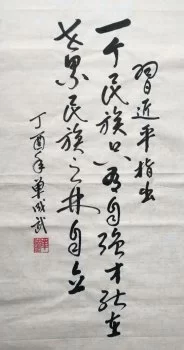 習近平指出
一个民族只有自强才能在
世界民族之林自立
丁酉年成武